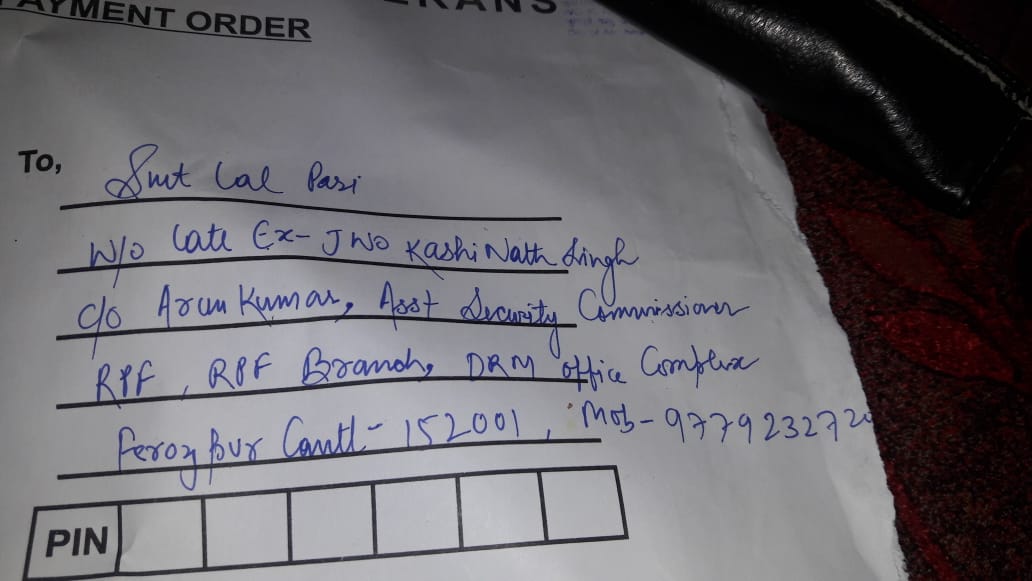 PAYMENT ORDER
To,
Smt Lal Pari
W/o Late Ex- JWO Kashi Nath Singh
c/o Arun Kumar, Asst Security Commissioner
RPF, RPF Branch, DRM office Complex
Ferozpur Cantt - 152001, Mob- 9779232720
PIN